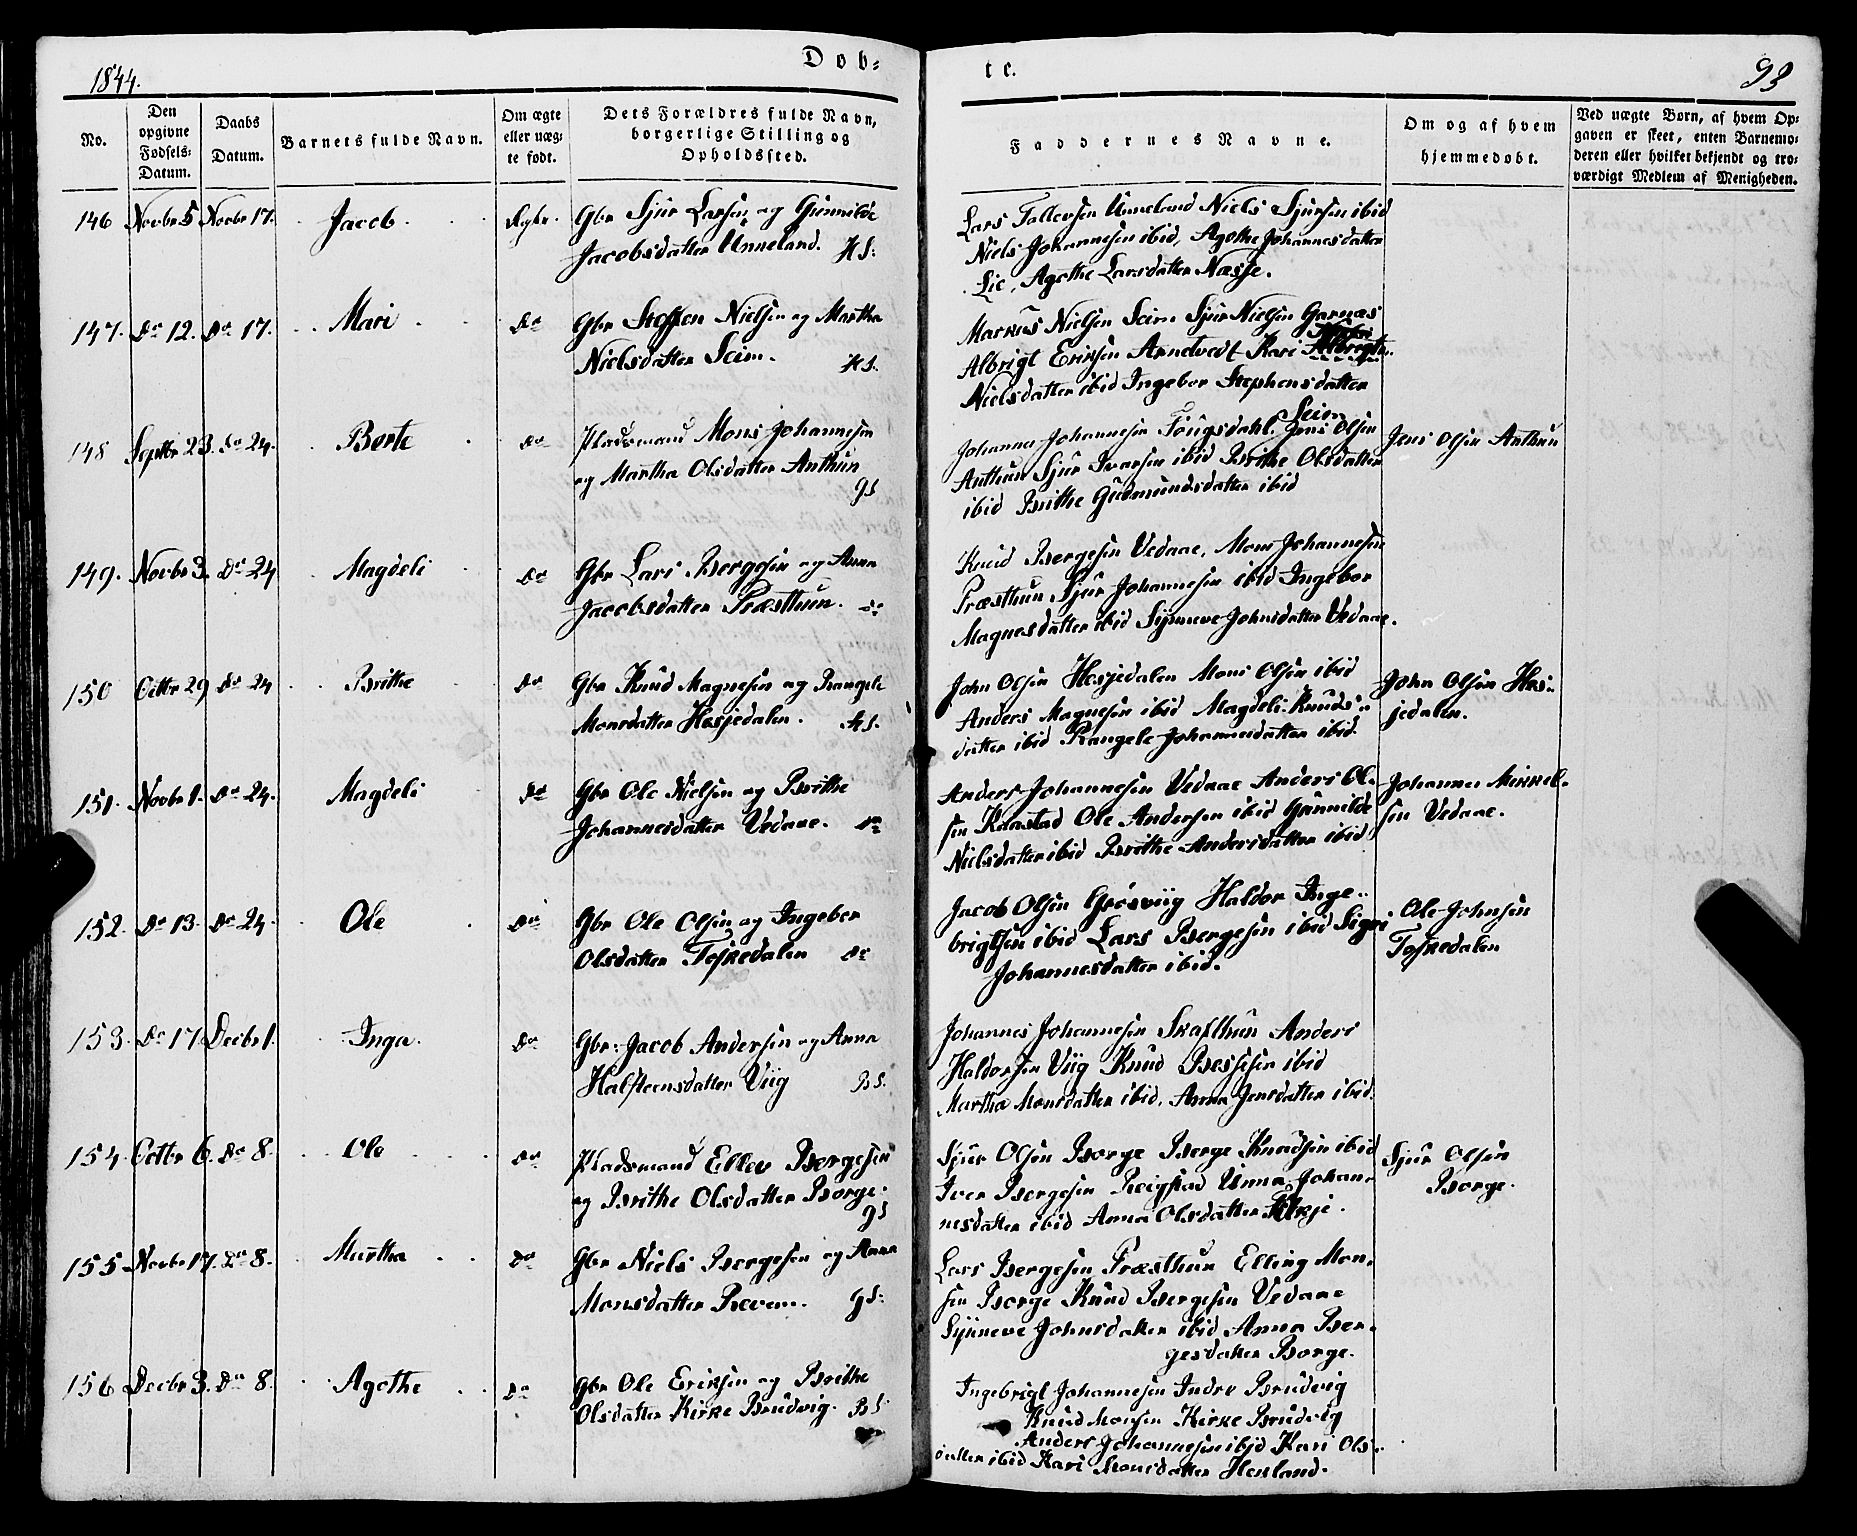 1844.
Døb-
te.
93
No.
Den
opgivne
Fødsels-
Datum.
Daabs
Datum.
Barnets fulde Navn.
Om ægte
eller uæg-
te født.
Dets Forældres fulde Navn,
borgerlige Stilling og
Opholdssted.
Faddernes Navne.
Om og af hvem
hjemmedøbt.
Ved uægte Børn, af hvem Op-
gaven er skeet, enten Barnemo-
deren eller hvilket bekjendt og tro-
værdigt Medlem af Menigheden.
146 Novbr 5 Novbr 17. Jacob Ægte. Gbr Sjur Larsen og Gunnilde
Jacobsdatter Unneland. HS:
Lars Tollevsen Unneland Niels Sjursen ibid
Niels Johannesen ibid, Agothe Johannesdatter
Lie, Agethe Larsdatter Næsse.
147. Do 12. Do 17. Mari Do Gbr Steffen Nielsen og Martha
Nielsdatter Seim. HS.
Markus Nielsen Seim Sjur Nielsen Garnæs
Albrigt Eriksen Arnetvedt Kari
Nielsdatter ibid Ingebor Stephensdatter
Seim
148 Septbr 23. Do 24. Berte Do Pladsmand Mons Johannesen
og Martha Olsdatter Anthun
gS
Johannes Johannesen Tougsdahl. Jens Olsen
Anthun Sjur Ivarsen ibid Brithe Olsdatter
ibid Brithe Gudmundsdatter ibid
Jens Olsen Anthun
149. Novbr 3. Do 24 Magdeli Do Gbr Lars Bergesen og Anna
Jacobsdatter Præsthun. Do
Knud Bergesen Vedaae, Mons Johannesen
Præsthun Sjur Johannesen ibid Ingebor
Magnesdatter ibid Synneve Johnsdatter Vedaae.
150 Octbr 29 Do 24 Brithe Do Gbr Knud Magnesen og Rangele
Monsdatter Hesjedalen. HS.
John Olsen Hesjedalen Mons Olsen ibid
Anders Magnesen ibid Magdeli Knuds-
datter ibid Rangele Johannesdatter ibid.
John Olsen Hes-
jedalen.
151. Novbr 1. Do 24. Magdeli Do Gbr Ole Nielsen og Brithe
Johannesdatter Vedaae. Do
Anders Johannesen Vedaae Anders Ol-
sen Kaastad Ole Andersen ibid Gunnilde
Nielsdatter ibid Brithe Andersdatter ibid
Johannes Mikkel-
sen Vedaae.
152. Do 13. Do 24. Ole Do Gbr Ole Olsen og Ingebor
Olsdatter Toskedalen Do
Jacob Olsen Grøsviig Haldor Inge-
brigtsen ibid Lars Bergesen ibid Sigri
Johannesdatter ibid.
Ole Johnsen
Toskedalen
153. Do 17. Decbr 1. Inga. Do Gbr. Jacob Andersen og Anna
Halsteensdatter Viig BS.
Johannes Johannesen Skafthun Anders
Haldorsen Viig Knud Bessesen ibid
Martha Monsdatter ibid. Anna Jensdatter ibid.
154. Octbr 6. Do 8. Ole Do Pladsmand Ellev Bergesen
og Brithe Olsdatter Borge.
gS
Sjur Olsen Borge Berge Knudsen ibid
Iver Bergesen Reigstad Unna Johan-
nesdatter ibid Anna Olsdatter
Sjur Olsen
Borge.
155 Novbr 17. Do 8. Martha Do Gbr Niels Bergesen og Anna
Monsdatter Reven. gS:
Lars Bergesen Præsthun Elling Mon-
sen Borge Knud Bergesen Vedaae
Synneve Johnsdatter ibid Anna Ber-
gesdatter Borge.
156 Decbr 3. Do 8. Agathe Do Gbr Ole Eriksen og Brithe
Olsdatter Kirke Brudvig. BS.
Ingebrigt Johannesen Indre Brudvig
Knud Monsen Kirke Brudvig
Anders Johannesen ibid Kari Ols-
datter ibid Kari Monsdatter Henland.